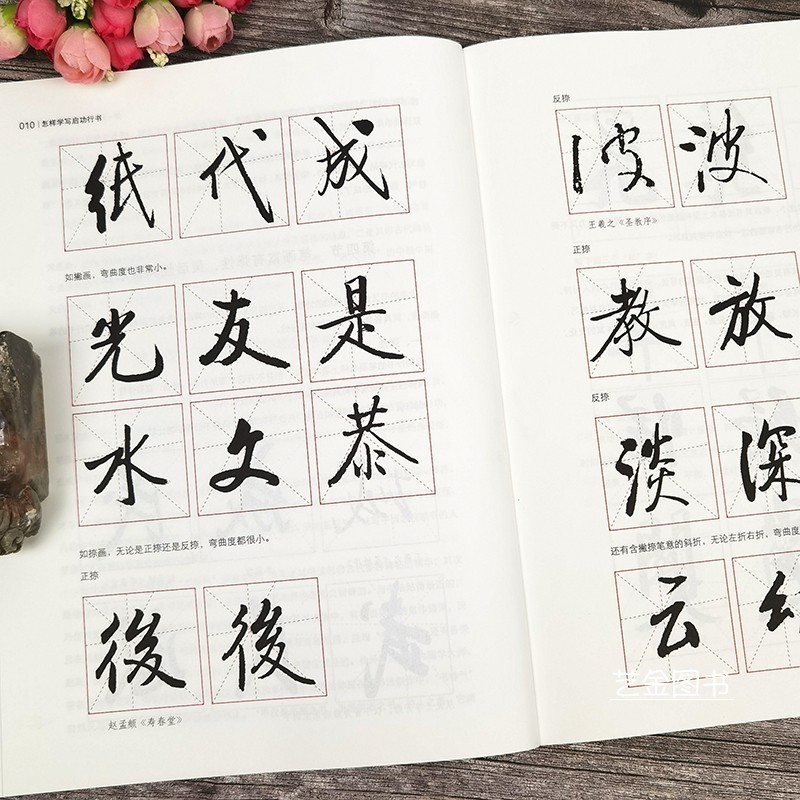 010 | 怎样学写启功行书
纸 代 成
如撇画，弯曲度也非常小。
光 友 是
水 文 恭
如捺画，无论是正捺还是反捺，弯曲度都很小。
正捺
後 後
赵孟頫《寿春堂》
反捺
波 波
王羲之《圣教序》
正捺
教 放
反捺
淡 深
还有含撇捺笔意的斜折，无论左折右折，弯曲度
云
艺金图书